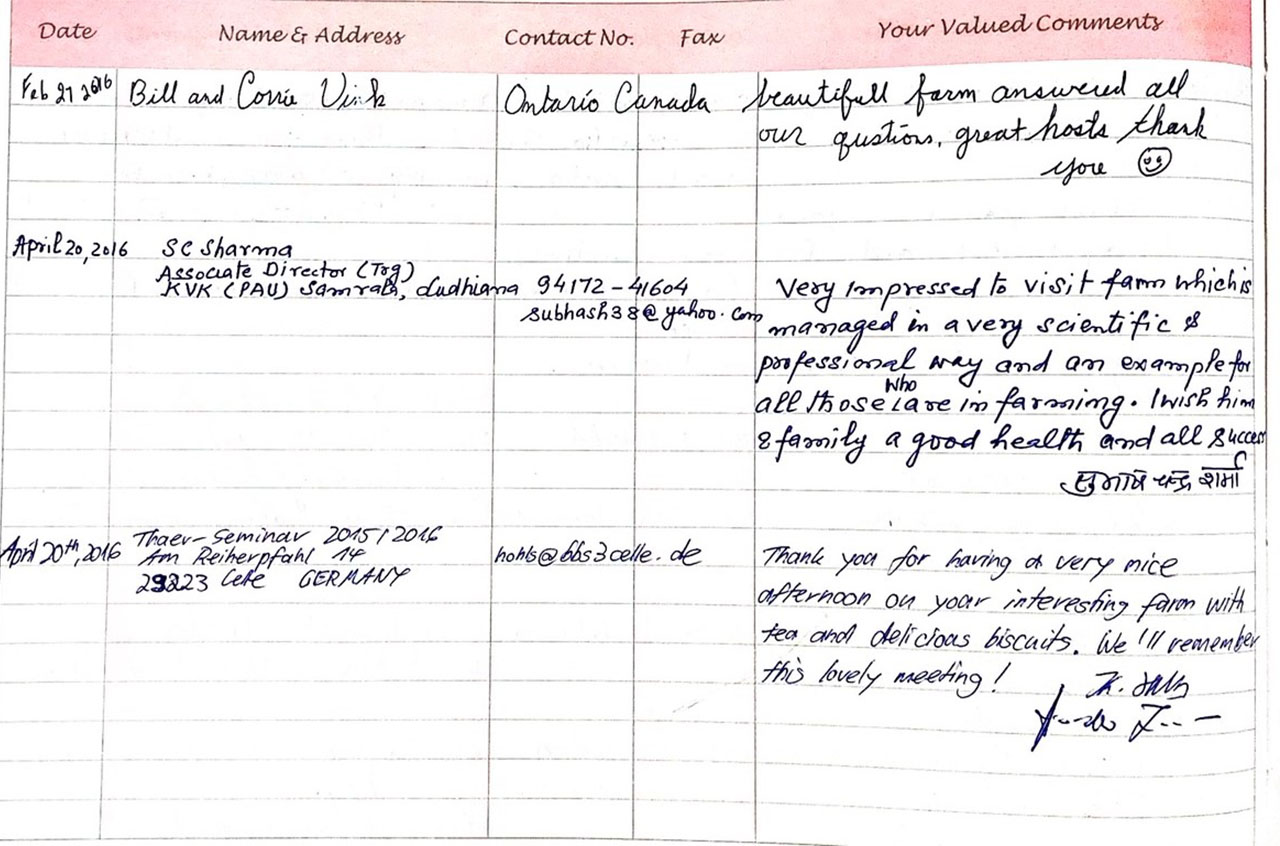 Date Name & Address Contact No. Fax Your Valued Comments
Feb 27 2016 Bill and Corrie Vink Ontario Canada beautifull farm answered all
our qustions, great hosts thank
you
April 20, 2016 SC Sharma
Associate Director (Trg)
KVK (PAU) Samrala, Ludhiana 94172-41604
subhash38@yahoo.com
Very impressed to visit farm which is
managed in a very scientific &
professional way and an example for
all those who are in farming. I wish him
& family a good health and all success
सुभाष चन्द्र शर्मा
April 20th, 2016 Thaer-Seminar 2015/2016
Am Reiherpfahl 14
29223 Celle GERMANY
hohls@bbs3celle.de
Thank you for having a very nice
afternoon on your interesting farm with
tea and delicious biscuits. We'll remember
this lovely meeting!